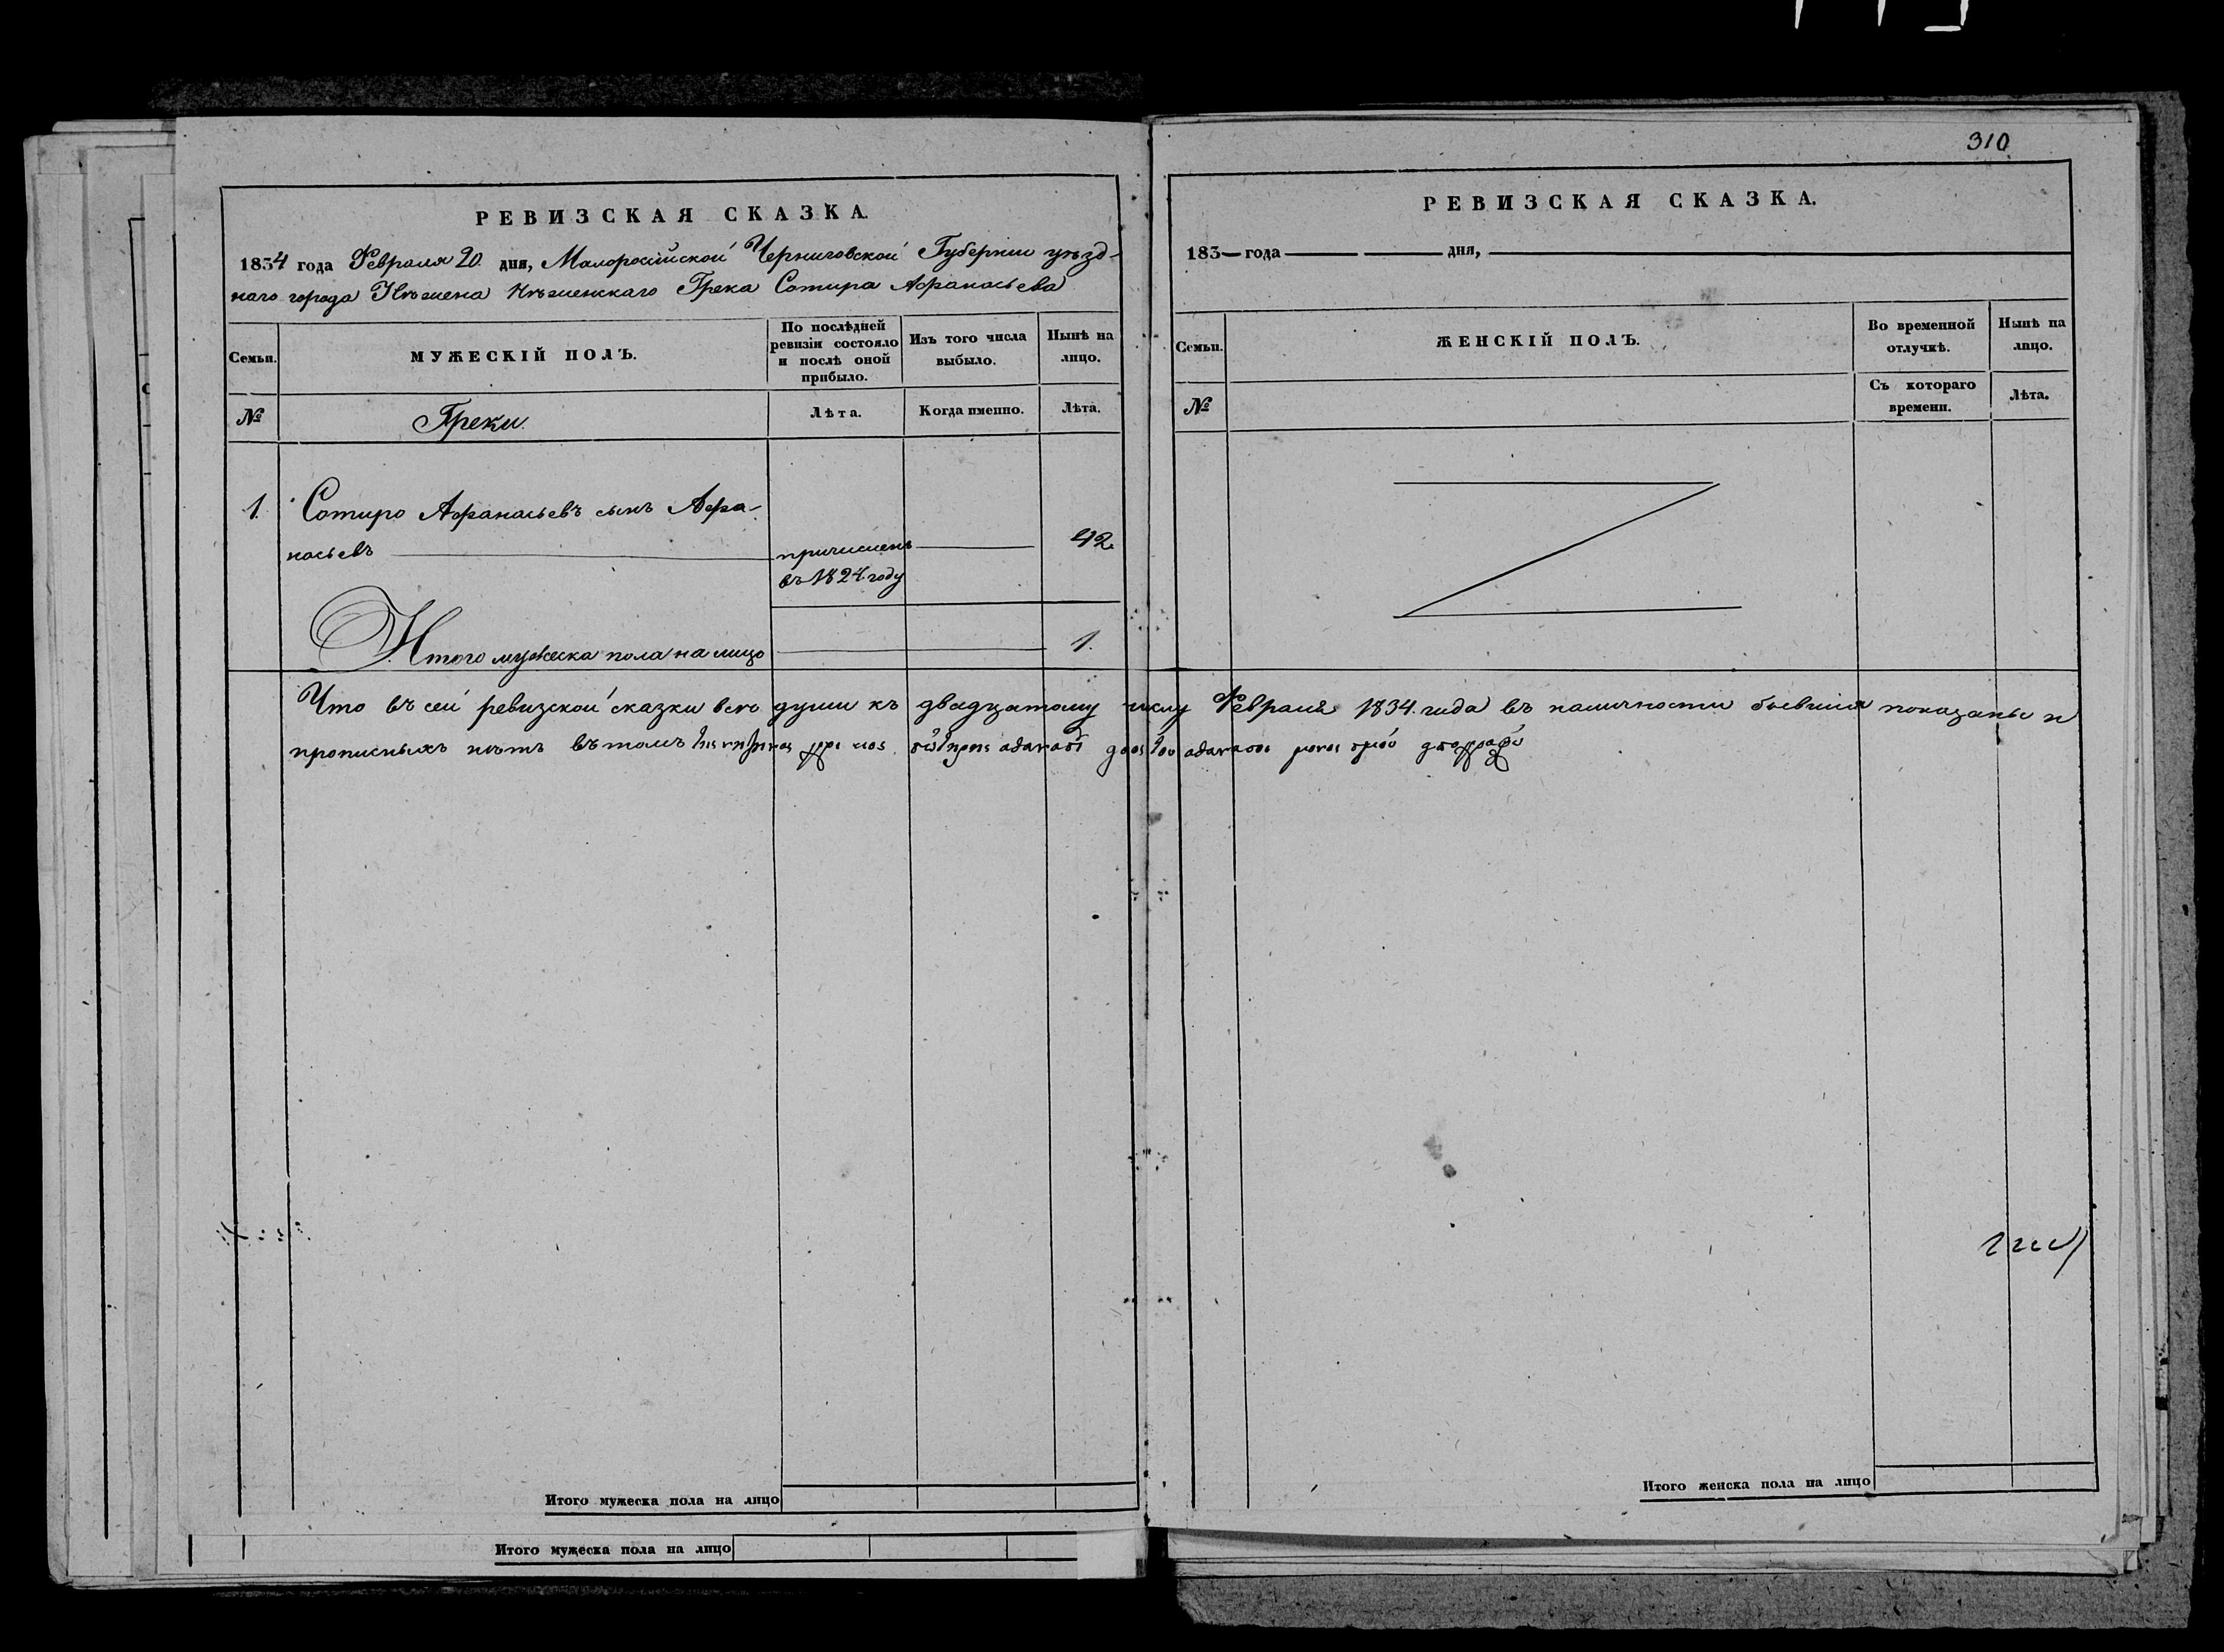 310
РЕВИЗСКАЯ СКАЗКА.
1834 года Февраля 20. дня, Малоросийской Черниговской Губернии уѣзд-
наго города Нѣжена Нѣженскаго Грека Сотира Афанасьева
Семьи.
МУЖЕСКІЙ ПОЛЪ.
По послѣдней ревизіи состояло и послѣ оной прибыло.
Изъ того числа выбыло.
Нынѣ на лицо.
№
Греки.
Лѣта.
Когда именно.
Лѣта.
1. Сотиро Афанасьевъ сынъ Афа-
насьевъ причисленъ 42.
въ 1824. году
Итого мужеска пола на лицо 1.
РЕВИЗСКАЯ СКАЗКА.
183— года дня,
Семьи.
ЖЕНСКІЙ ПОЛЪ.
Во временной отлучкѣ.
Нынѣ на лицо.
№
Съ котораго времени.
Лѣта.
Что въ сей ревизской сказки всѣ души къ двадцатому числу Февраля 1834. года въ наличности бывшія показаны и
прописныхъ нѣтъ въ томъ
Итого мужеска пола на лицо
Итого женска пола на лицо
Итого мужеска пола на лицо